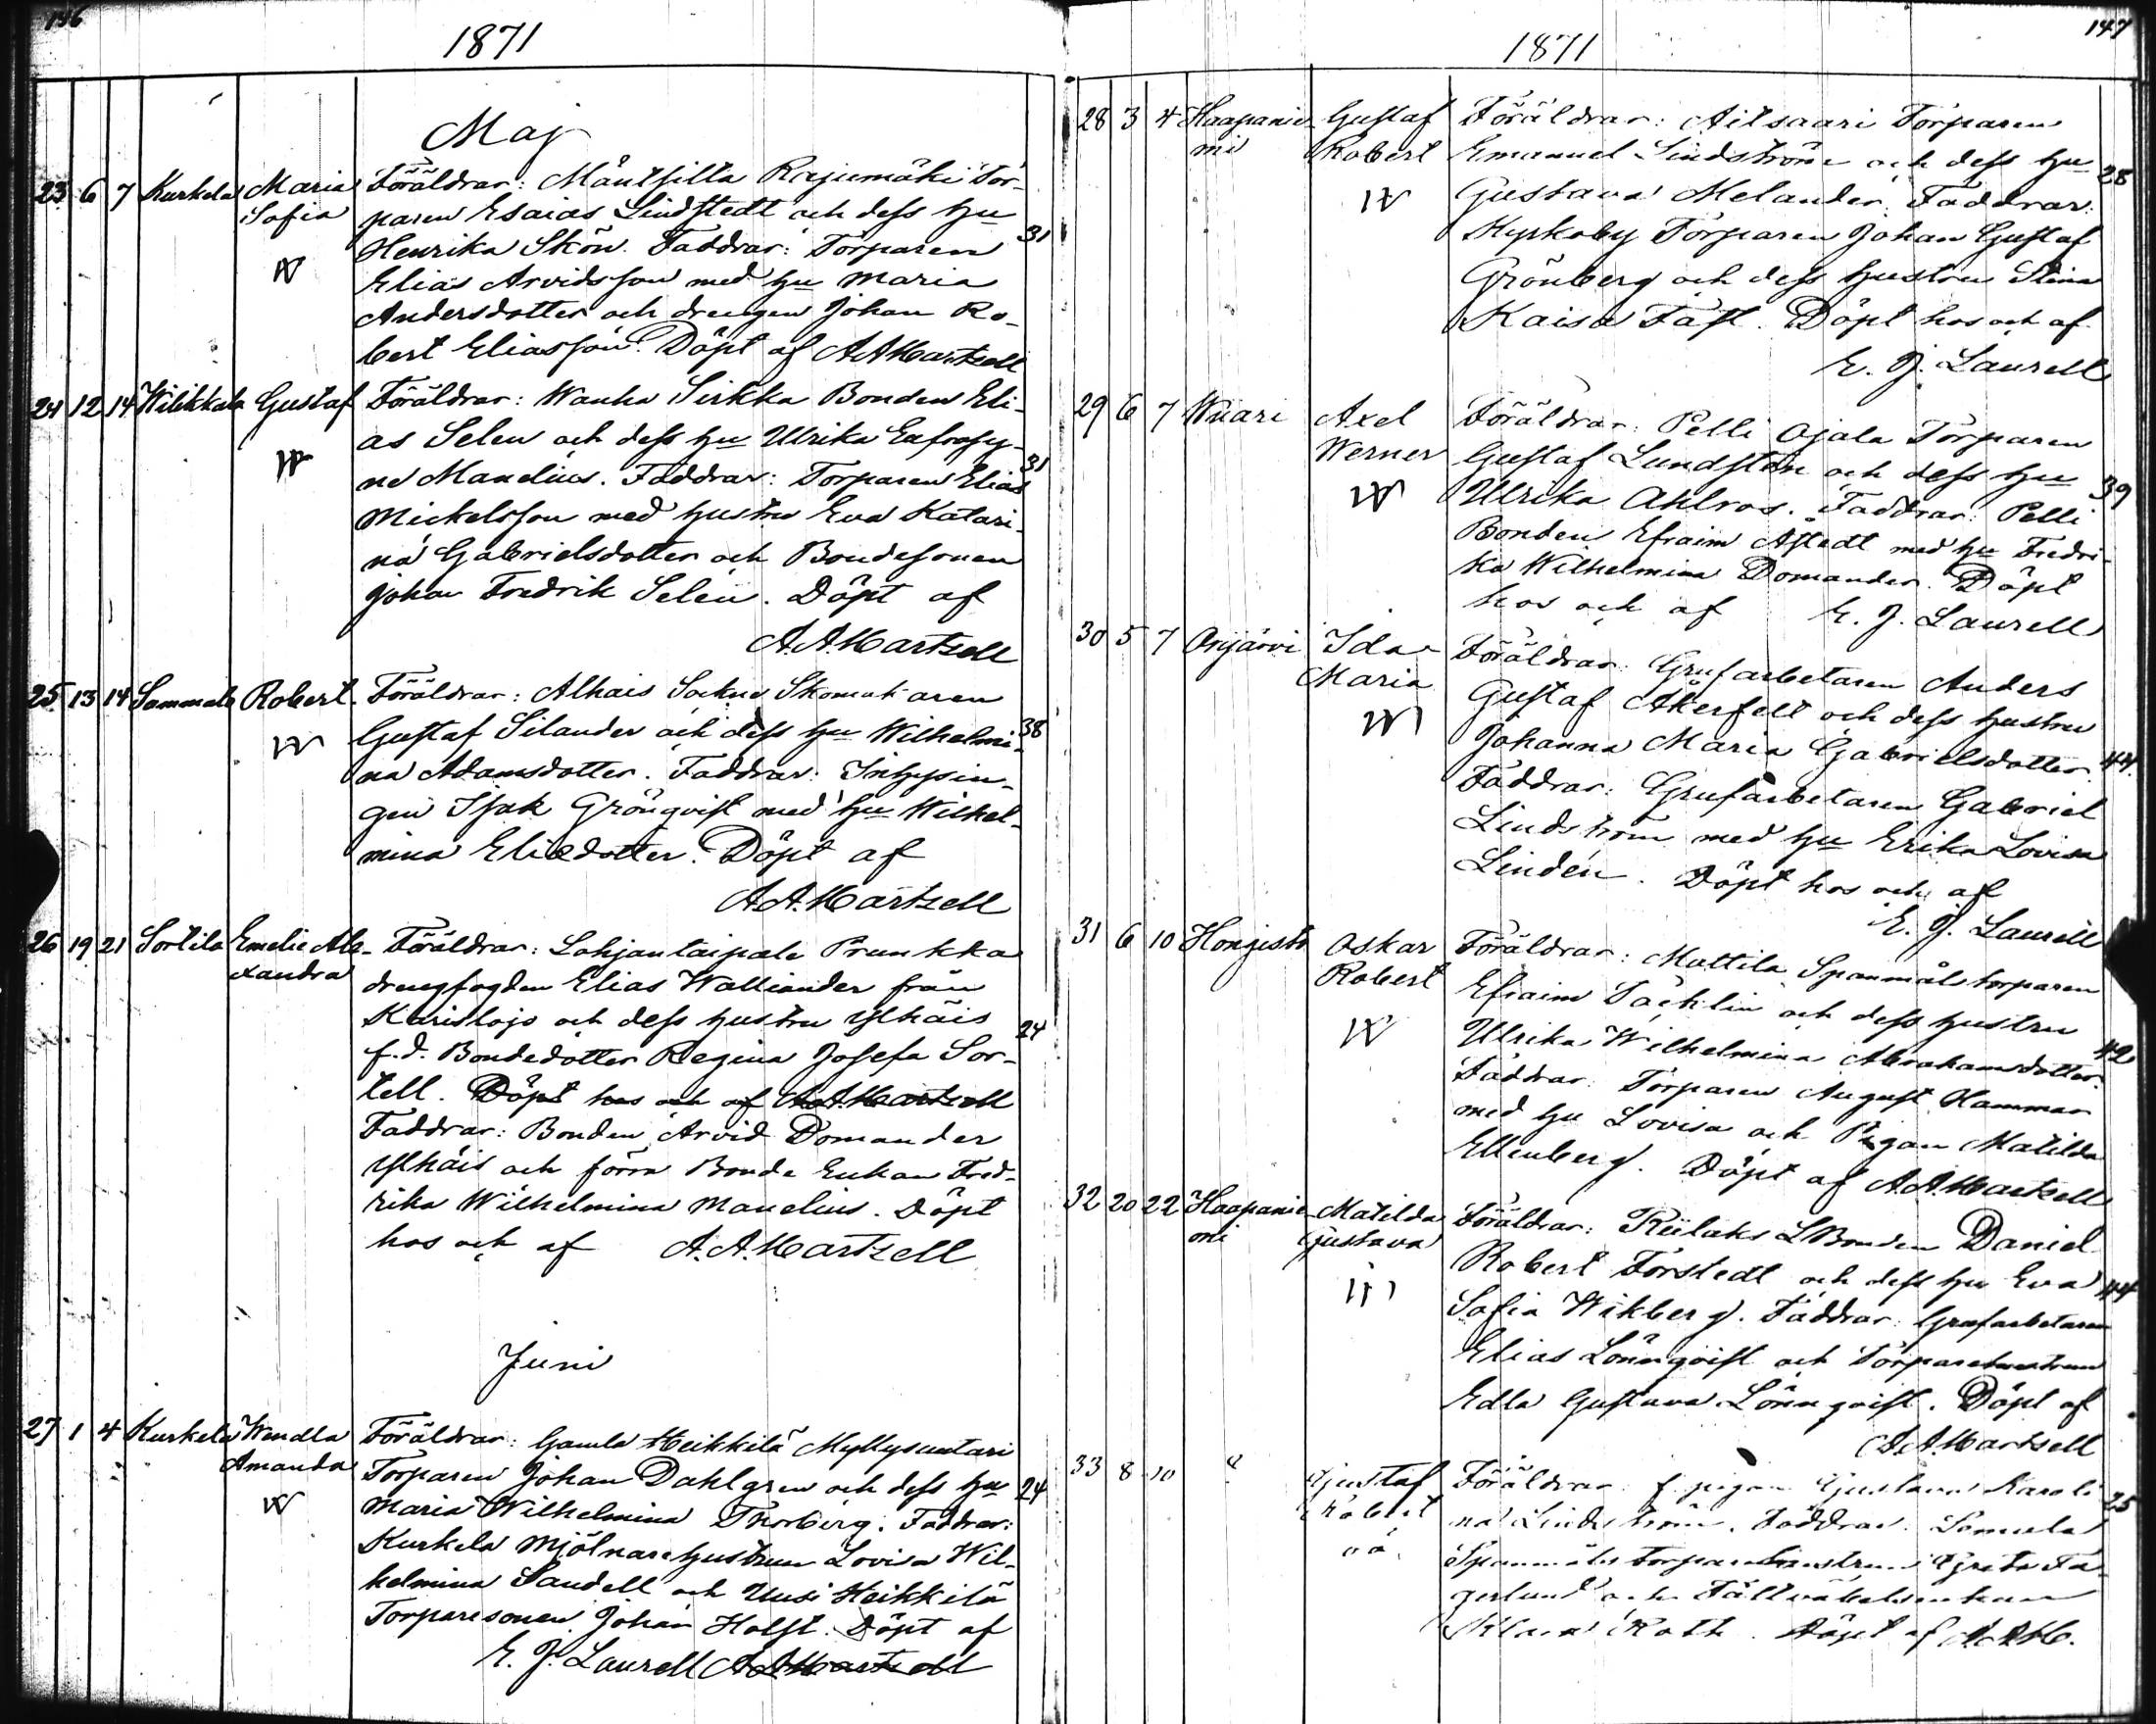 146
1871
Maj
23 6 7 Kurkela Maria Föräldrar: Mäntsilla Rajumäki Tor-
Sofia paren Esaias Lindstedt och dess hu
Henrika Skön. Faddrar: Torparen 31
Elias Arvidsson med hu Maria
Andersdotter och drengen Johan Ro-
bert Eliasson. Döpt af A. A. Hartzell
24 12 14 Wilikkala Gustaf Föräldrar: Wanha Sirkka Bonden Eli-
as Selen och dess hu Ulrika Eufrosy-
ne Manelius. Faddrar: Torparen Elias 31
Mickelsson med hustru Eva Katari-
na Gabrielsdotter och Bondesonen
Johan Fredrik Selen. Döpt af
A. A. Hartzell
25 13 14 Sammats Robert. Föräldrar: Alhais Sockne Skomakaren
Gustaf Silander och dess hu Wilhelmi- 38
na Adamsdotter. Faddrar: Inhysin-
gen Isak Grönqvist med hu Wilhel-
mina Eliedotter. Döpt af
A. A. Hartzell
26 19 21 Sortila Emelie Ale- Föräldrar: Lohjantaipale Prunkka
xandra drengfogden Elias Wallander från
Karislojo och dess hustru Ylhäis 24
f.d. Bondedotter Regina Josefa Sor-
tell. Döpt hos och af A. A. Hartzell
Faddrar: Bonden Arvid Domander
Ylhäis och förra Bonde Enkan Fred-
rika Wilhelmina Manelius. Döpt
hos och af A. A. Hartzell
Juni
27 1 4 Kurkela Wendla Föräldrar: Gamla Heikkilä Myllysuutari
Amanda Torparen Johan Dahlgren och dess hu 24
Maria Wilhelmina Thorberg. Faddrar:
Kurkela Mjölnarehustrun Lovisa Wil-
helmina Sandell och Uusi Heikkilä
Torparesonen Johan Holst. Döpt af
E. J. Laurell A. A. Hartzell
147
1871
28 3 4 Haapanie- Gustaf Föräldrar: Aitsaari Torparen
mi Robert Emanuel Lindström och dess hu 28
Gustava Melander. Faddrar:
Kyrkoby Torparen Johan Gustaf
Grönberg och dess hustru Stina
Kaisa Fast. Döpt hos och af
E. J. Laurell
29 6 7 Wuari Axel Föräldrar: Pelli Ojala Torparen
Werner Gustaf Lundsten och dess hu
Ulrika Ahlros. Faddrar: Pelli 39
Bonden Efraim Åstedt med hu Fredri-
ka Wilhelmina Domander. Döpt
hos och af E. J. Laurell
30 5 7 Orijärvi Ida Föräldrar: Grufarbetaren Anders
Maria Gustaf Åkerfelt och dess hustru
Johanna Maria Gabrielsdotter. 44.
Faddrar: Grufarbetaren Gabriel
Lindström med hu Erika Lovisa
Lindén. Döpt hos och af
E. J. Laurell
31 6 10 Hongisto Oskar Föräldrar: Mattila Spanmålstorparen
Robert Efraim Säcklin och dess hustru
Ulrika Wilhelmina Abrahamsdotter. 42
Faddrar: Torparen August Hammar
med hu Lovisa och Pigan Matilda
Ellenberg. Döpt af A. A. Hartzell
32 20 22 Haapanie- Matilda Föräldrar: Riilaks LBonden Daniel
mi Gustava Robert Forstedt och dess hu Eva 44
Sofia Wikberg. Faddrar: Grufarbetaren
Elias Lönnqvist och Torparehustrun
Edla Gustava Lönnqvist. Döpt af
A. A. Hartzell
33 8 10 " Gustaf Föräldrar: f. pigan Gustava Karoli-
Robert na Lindström. Faddrar: Samula 25
oä. Spanmåls torparehustrun Greta Fa-
gerlund och Fältväbelsenkan
Klara Roth. Döpt af A. A. H.